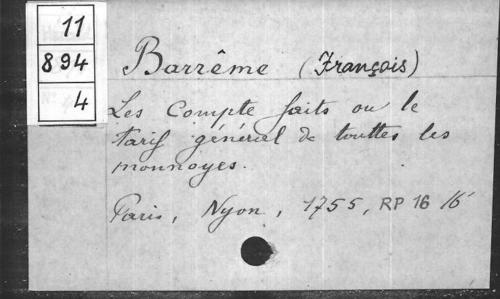 11
894
4
Barrême (François)
Les Compte faits ou le
tarif général de touttes les
monnoyes.
Paris, Nyon, 1755, RP 16 16°